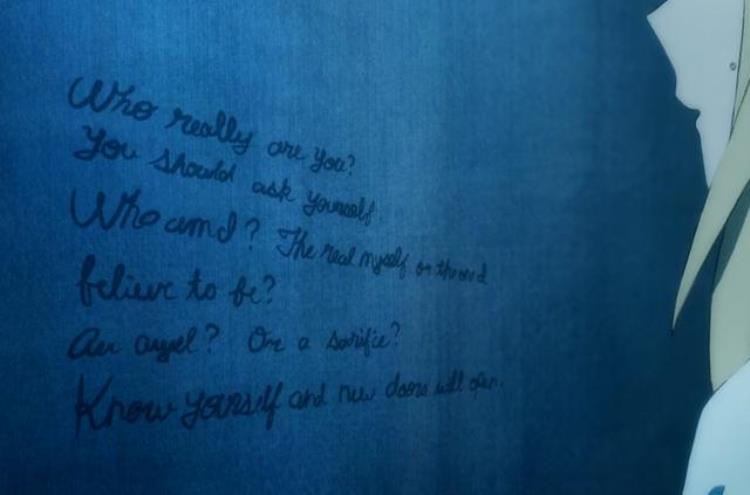 Who really are you?
You should ask yourself.
Who am I? The real myself or the one I
believe to be?
An angel? Or a sacrifice?
Know yourself and new doors will open.